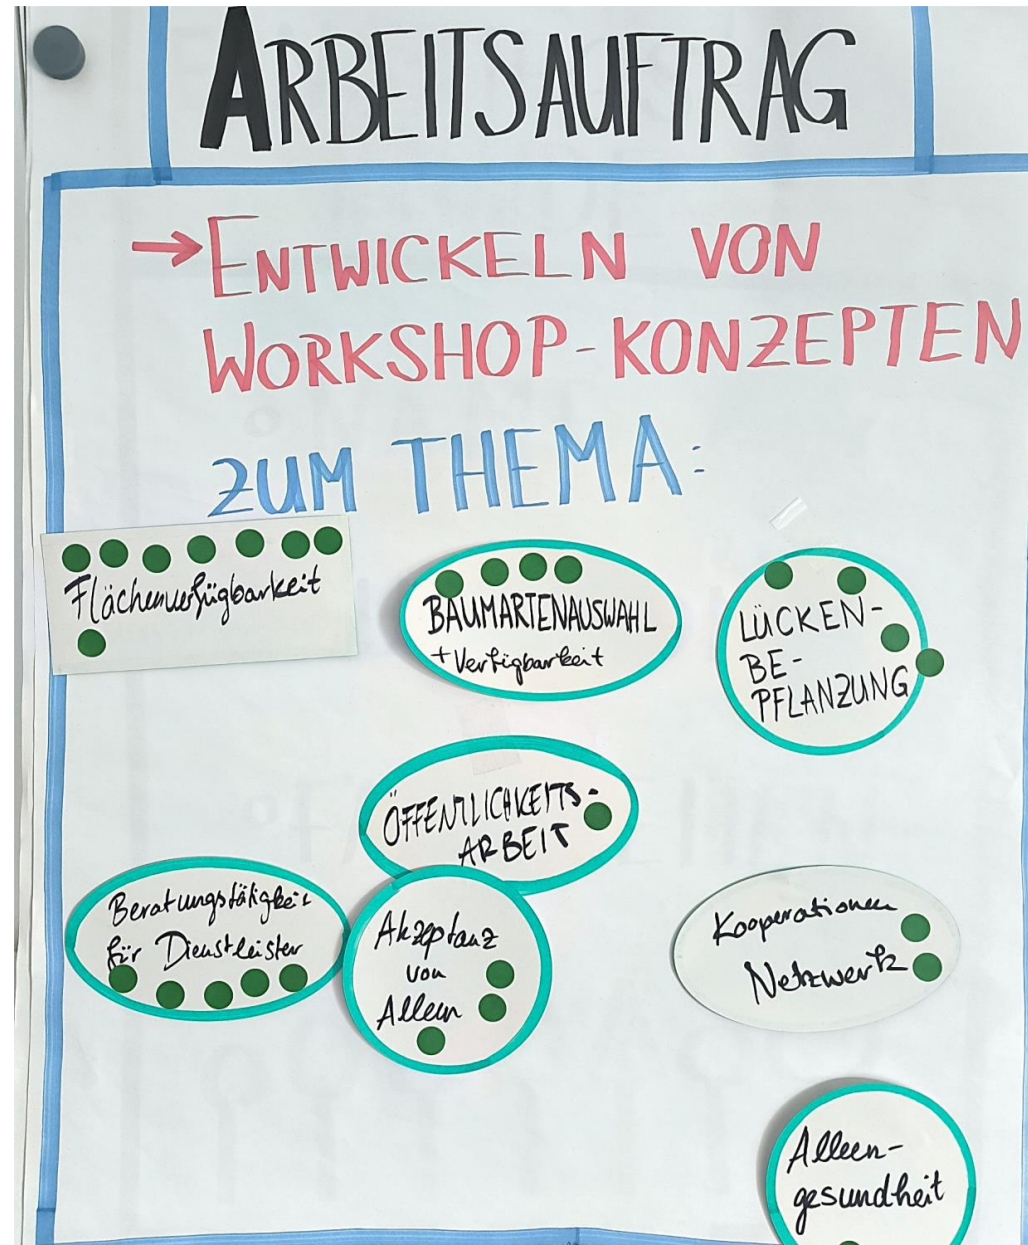 ARBEITSAUFTRAG
→ ENTWICKELN VON
WORKSHOP-KONZEPTEN
ZUM THEMA:
Flächenverfügbarkeit
BAUMARTENAUSWAHL
+ Verfügbarkeit
LÜCKEN-
BE-
PFLANZUNG
ÖFFENTLICHKEITS-
ARBEIT
Beratungstätigkeit
für Dienstleister
Akzeptanz
von
Alleen
Kooperationen
Netzwerk
Alleen-
gesundheit